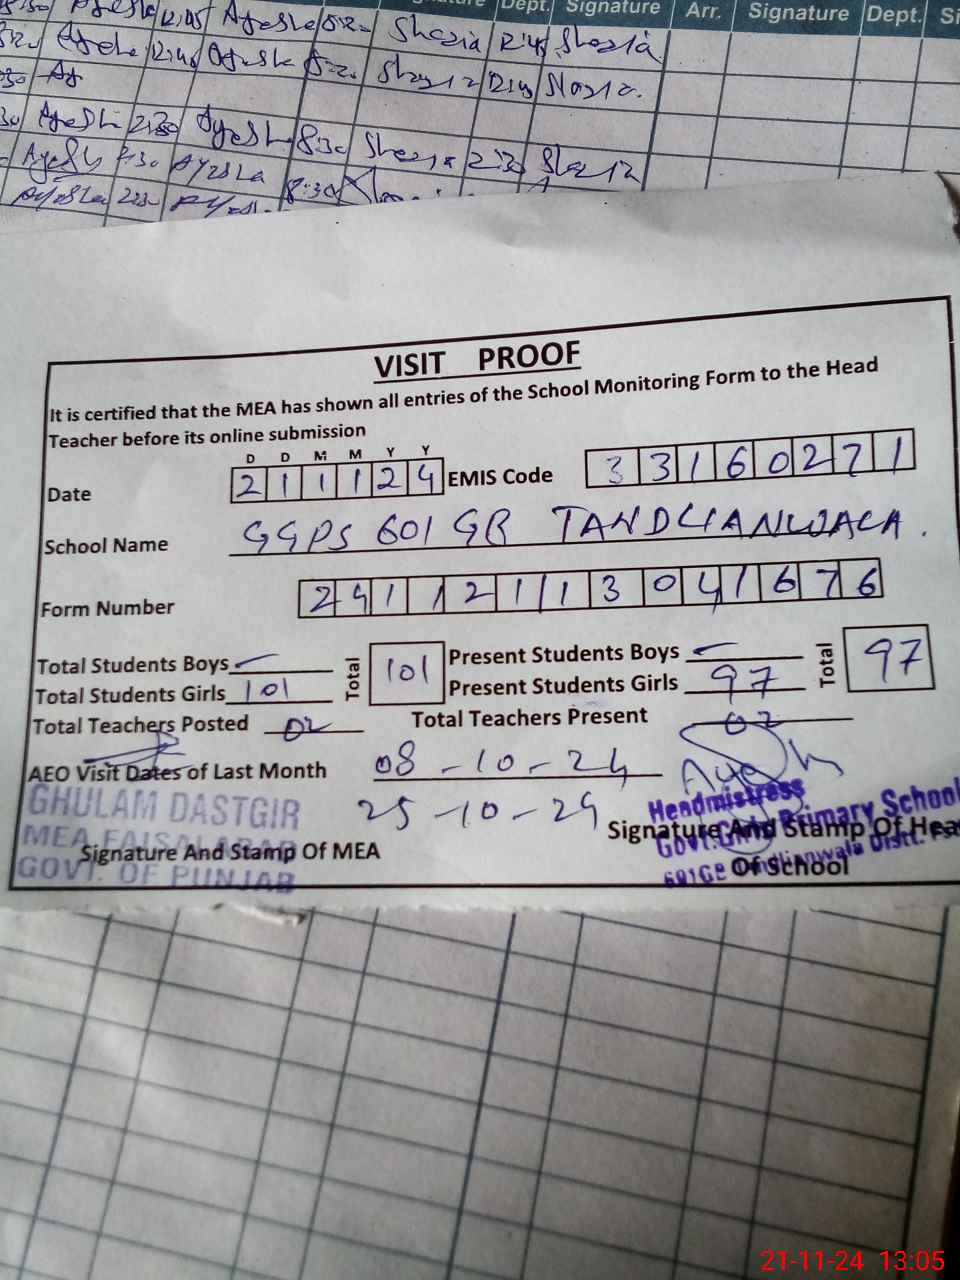 Dept. Signature Arr. Signature Dept.
Ayesha 12:45 Ayesha Shazia 12:45 Shazia
Ayesha 12:45 Ayesha Shazia 12:45 Shazia.
Ay
Ayesha 2:30 Ayesha 8:30 Shazia 2:30 Shazia
Ayesha 2:30 Ayesha 8:30
VISIT PROOF
It is certified that the MEA has shown all entries of the School Monitoring Form to the Head
Teacher before its online submission
D D M M Y Y
Date 2 1 1 1 2 4 EMIS Code 3 3 1 6 0 2 7 1
School Name GGPS 601 GB TANDLIANWALA.
Form Number 2 4 1 1 2 1 1 1 3 0 4 1 6 7 6
Total Students Boys — Total 101 Present Students Boys — Total 97
Total Students Girls 101 Present Students Girls 97
Total Teachers Posted 02 Total Teachers Present 02
AEO Visit Dates of Last Month 08-10-24
25-10-24
GHULAM DASTGIR
MEA FAISALABAD
GOVT. OF PUNJAB
Signature And Stamp Of MEA
Headmistress
Govt. Girls Primary School
Tandlianwala Distt.
Signature And Stamp Of Head
Of School
21-11-24 13:05